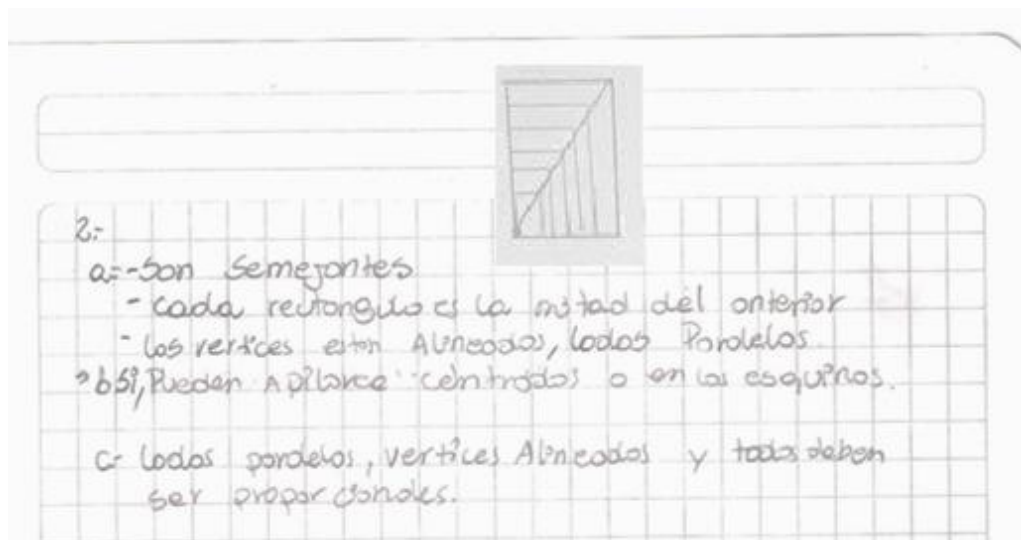 2.-
a=-Son Semejantes
- cada rectangulo es la mitad del anterior
- los vertices estan Alineados, lados Paralelos.
b Si, Pueden Apilarce centrados o en las esquinas.
c- lados paralelos, vertices Alineados y todos deben
ser proporcionales.